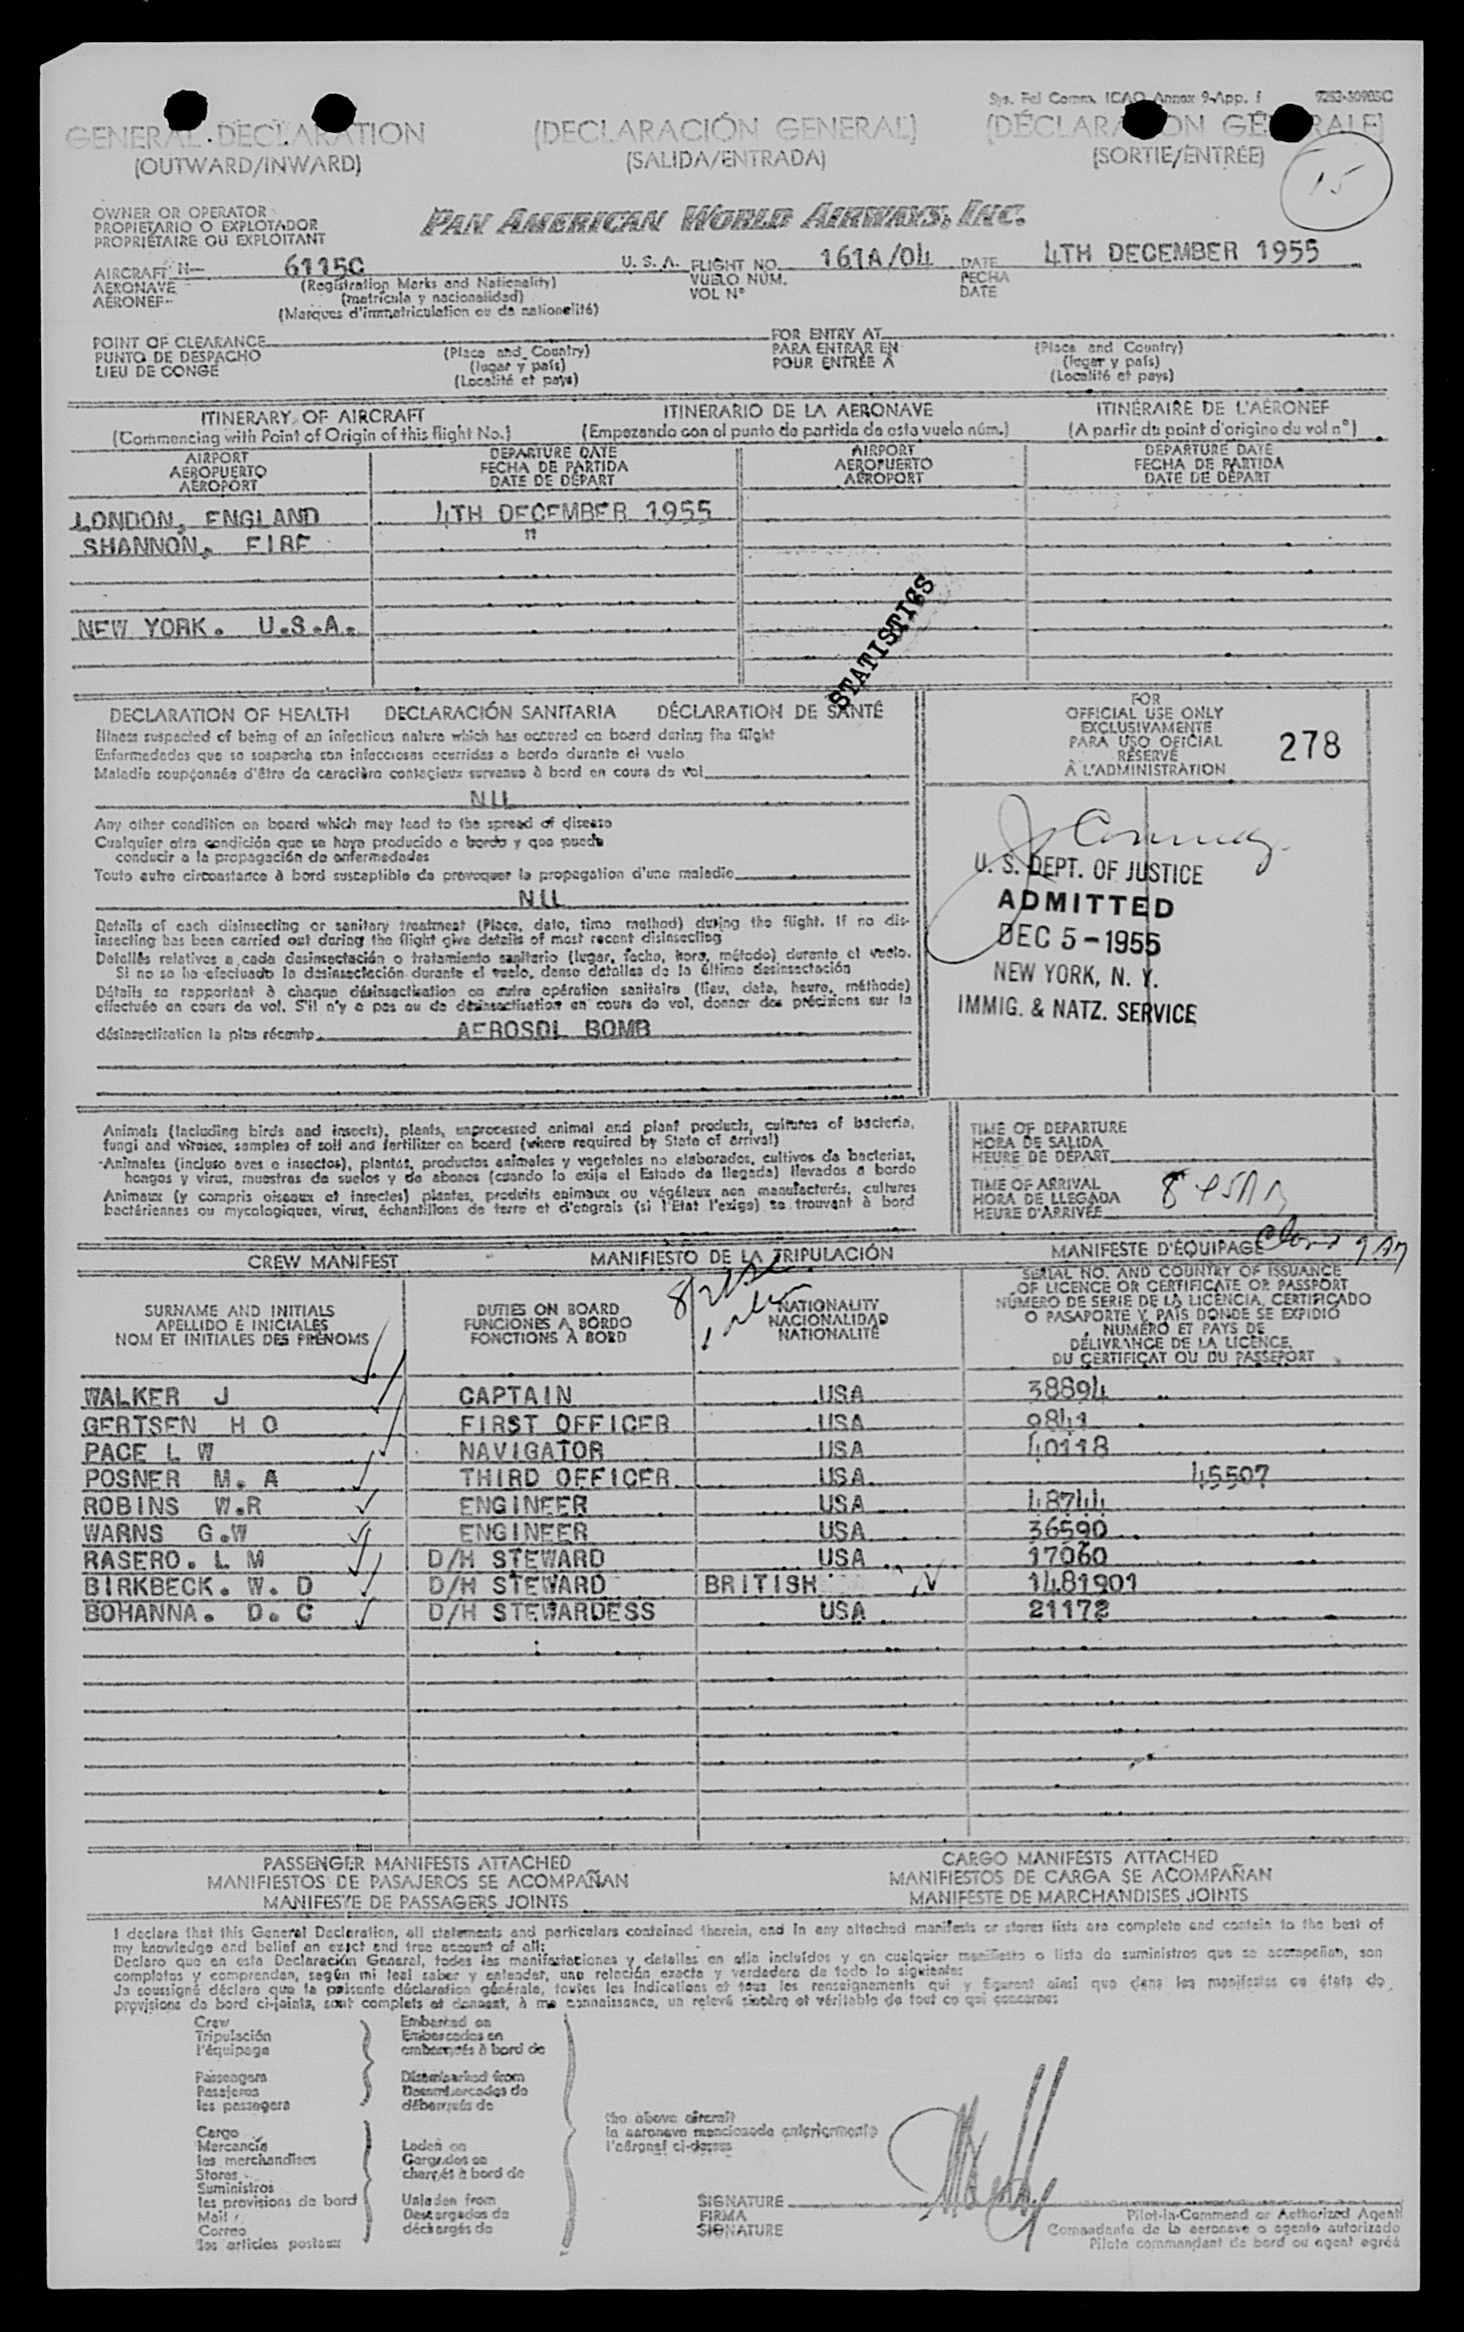 Sys. Fel Comm. ICAO Annex 9-App. 1
GENERAL DECLARATION (DECLARACIÓN GENERAL) (DÉCLARATION GÉNÉRALE)
(OUTWARD/INWARD) (SALIDA/ENTRADA) (SORTIE/ENTRÉE)
15
OWNER OR OPERATOR
PROPIETARIO O EXPLOTADOR
PROPRIÉTAIRE OU EXPLOITANT
PAN AMERICAN WORLD AIRWAYS, INC.
AIRCRAFT N- 6115C U. S. A. FLIGHT NO. 161A/04 DATE 4TH DECEMBER 1955
AERONAVE (Registration Marks and Nationality) VUELO NÚM. FECHA
AÉRONEF- (matrícula y nacionalidad) VOL Nº DATE
(Marques d'immatriculation ou de nationalité)
POINT OF CLEARANCE FOR ENTRY AT
PUNTO DE DESPACHO (Place and Country) PARA ENTRAR EN (Place and Country)
LIEU DE CONGÉ (lugar y país) POUR ENTRÉE À (lugar y país)
(Localité et pays) (Localité et pays)
ITINERARY OF AIRCRAFT ITINERARIO DE LA AERONAVE ITINÉRAIRE DE L'AÉRONEF
(Commencing with Point of Origin of this Flight No.) (Empezando con el punto de partida de esta vuelo núm.) (A partir du point d'origine du vol nº)
AIRPORT DEPARTURE DATE AIRPORT DEPARTURE DATE
AEROPUERTO FECHA DE PARTIDA AEROPUERTO FECHA DE PARTIDA
AÉROPORT DATE DE DÉPART AÉROPORT DATE DE DÉPART
LONDON, ENGLAND 4TH DECEMBER 1955
SHANNON, EIRE "
NEW YORK. U.S.A.
STATISTICS
DECLARATION OF HEALTH DECLARACIÓN SANITARIA DÉCLARATION DE SANTÉ
Illness suspected of being of an infectious nature which has occured on board during the flight
Enfermedades que se sospecha son infecciosas ocurridas a bordo durante el vuelo
Maladie soupçonnée d'être de caractère contagieux survenue à bord en cours de vol
NIL
Any other condition on board which may lead to the spread of disease
Cualquier otra condición que se haya producido a bordo y que pueda
conducir a la propagación de enfermedades
Toute autre circonstance à bord susceptible de provoquer la propagation d'une maladie
NIL
Details of each disinsecting or sanitary treatment (Place, date, time method) during the flight. If no dis-
insecting has been carried out during the flight give details of most recent disinsecting
Detalles relativos a cada desinsectación o tratamiento sanitario (lugar, fecha, hora, método) durante el vuelo.
Si no se ha efectuado la desinsectación durante el vuelo, dense detalles de la última desinsectación
Détails se rapportant à chaque désinsectisation ou autre opération sanitaire (lieu, date, heure, méthode)
effectuée en cours de vol. S'il n'y a pas eu de désinsectisation en cours de vol, donner des précisions sur la
désinsectisation la plus récente AEROSOL BOMB
FOR
OFFICIAL USE ONLY
EXCLUSIVAMENTE
PARA USO OFICIAL
RÉSERVÉ
À L'ADMINISTRATION
278
U. S. DEPT. OF JUSTICE
ADMITTED
DEC 5 - 1955
NEW YORK, N. Y.
IMMIG. & NATZ. SERVICE
Animals (including birds and insects), plants, unprocessed animal and plant products, cultures of bacteria,
fungi and viruses, samples of soil and fertilizer on board (where required by State of arrival)
Animales (incluso aves e insectos), plantas, productos animales y vegetales no elaborados, cultivos de bacterias,
hongos y virus, muestras de suelos y de abonos (cuando lo exija el Estado de llegada) llevados a bordo
Animaux (y compris oiseaux et insectes) plantes, produits animaux ou végétaux non manufacturés, cultures
bactériennes ou mycologiques, virus, échantillons de terre et d'engrais (si l'Etat l'exige) se trouvant à bord
TIME OF DEPARTURE
HORA DE SALIDA
HEURE DE DÉPART
TIME OF ARRIVAL
HORA DE LLEGADA
HEURE D'ARRIVÉE
CREW MANIFEST MANIFIESTO DE LA TRIPULACIÓN MANIFESTE D'ÉQUIPAGE
SURNAME AND INITIALS
APELLIDO E INICIALES
NOM ET INITIALES DES PRÉNOMS
DUTIES ON BOARD
FUNCIONES A BORDO
FONCTIONS À BORD
NATIONALITY
NACIONALIDAD
NATIONALITÉ
SERIAL NO. AND COUNTRY OF ISSUANCE
OF LICENCE OR CERTIFICATE OR PASSPORT
NÚMERO DE SERIE DE LA LICENCIA, CERTIFICADO
O PASAPORTE Y PAÍS DONDE SE EXPIDIÓ
NUMÉRO ET PAYS DE
DÉLIVRANCE DE LA LICENCE,
DU CERTIFICAT OU DU PASSEPORT
WALKER J CAPTAIN USA 38894
GERTSEN H O FIRST OFFICER USA 9841
PACE L W NAVIGATOR USA 40118
POSNER M. A THIRD OFFICER USA 45507
ROBINS W.R ENGINEER USA 48744
WARNS G.W ENGINEER USA 36590
RASERO. L M D/H STEWARD USA 17060
BIRKBECK. W. D D/H STEWARD BRITISH 1481901
BOHANNA. D. C D/H STEWARDESS USA 21172
PASSENGER MANIFESTS ATTACHED CARGO MANIFESTS ATTACHED
MANIFIESTOS DE PASAJEROS SE ACOMPAÑAN MANIFIESTOS DE CARGA SE ACOMPAÑAN
MANIFESTE DE PASSAGERS JOINTS MANIFESTE DE MARCHANDISES JOINTS
I declare that this General Declaration, all statements and particulars contained therein, and in any attached manifests or stores lists are complete and contain to the best of
my knowledge and belief an exact and true account of all:
Declaro que en esta Declaración General, todas las manifestaciones y detalles en ella incluídos y en cualquier manifiesto o lista de suministros que se acompañan, son
completos y comprenden, según mi leal saber y entender, una relación exacta y verdadera de todo lo siguiente:
Je soussigné déclare que la présente déclaration générale, toutes les indications et tous les renseignements qui y figurent ainsi que dans les manifestes ou états de
provisions de bord ci-joints, sont complets et donnent, à ma connaissance, un relevé sincère et véritable de tout ce qui concerne:
Crew Embarked on
Tripulación Embarcados en
l'équipage embarqués à bord de
Passengers Disembarked from
Pasajeros Desembarcados de
les passagers débarqués de
Cargo
Mercancía Laden on
les merchandises Cargados en
Stores chargés à bord de
Suministros
les provisions de bord Unladen from
Mail Descargados de
Correo déchargés de
les articles postaux
the above aircraft
la aeronave mencionada anteriormente
l'aéronef ci-dessus
SIGNATURE
FIRMA
SIGNATURE
Pilot-in-Command or Authorized Agent
Comandante de la aeronave o agente autorizado
Pilote commandant de bord ou agent agréé